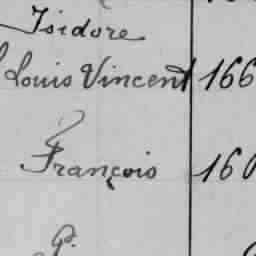 Isidore
Louis Vincent 166
François 160
P.